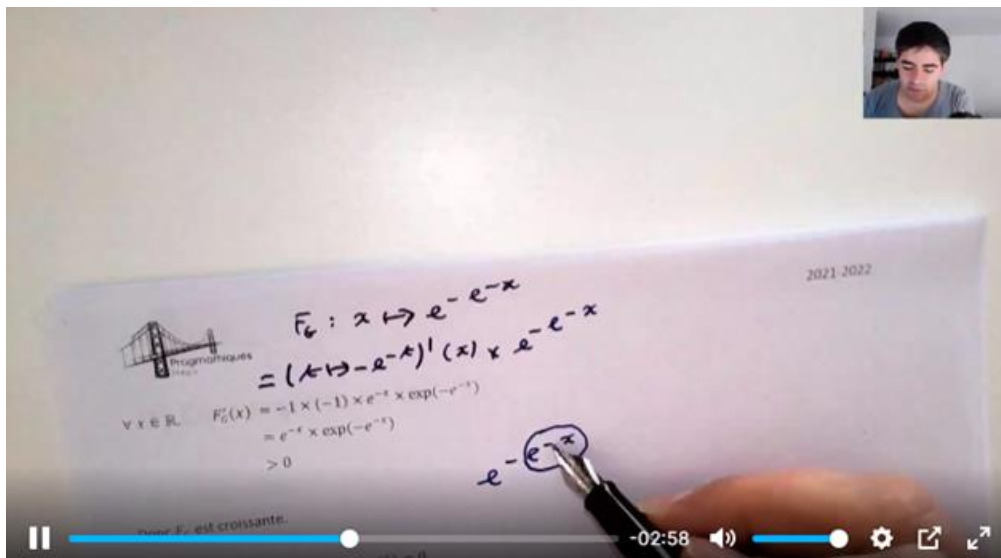 2021-2022
F_G : x ↦ e^{-e^{-x}}
Pragmathiques
= (t ↦ -e^{-t})' (x) × e^{-e^{-x}}
∀ x ∈ ℝ, F_G'(x) = -1 × (-1) × e^{-x} × exp(-e^{-x})
= e^{-x} × exp(-e^{-x})
> 0
e^{-e^{-x}}
Donc F_G est croissante.
-02:58